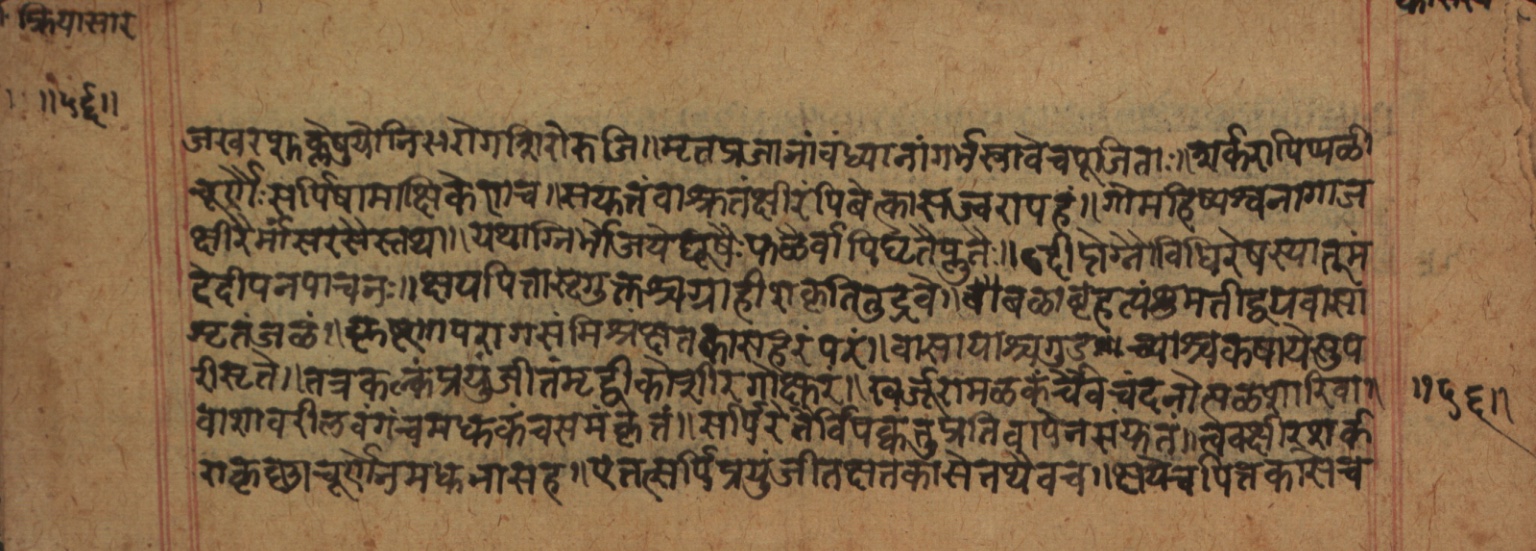 क्रियासार
॥५६॥
कासस्व
जस्वरशुक्लेषुयोनिसरोगशिरोरुजि॥मृतप्रजानांवंध्यानांगर्भस्त्रावेचपूजिताः॥शर्करापिप्पळी
चूर्णैःसर्पिषामाक्षिकेणच॥संयुक्तंवाश्रृतंक्षीरंपिबेत्कासज्वरापहं॥गोमहिष्यश्वनागाज
क्षीरैर्मांसरसैस्तथा॥यथाग्निर्भोजयेद्यूषैःफळैर्वापिघृतैप्लुतैः॥दीप्तेग्नौविधिरेषस्यात्मं
देदीपनपाचनः॥क्षयपित्तास्रगुक्तश्चग्राहीशकृतितुद्रवे॥बळाबृहत्यंशुमतीद्वयवासा
श्टतंजळं॥कृष्णापरागसंमिश्रंक्षतकासहरंपरं॥वासायाश्चगुडूच्याश्चकषायेसुप
रीस्टते॥तत्रकल्कंप्रयुंजीतंमृद्वीकोशीरगोक्षुरं॥खर्जूरामळकंचैवचंदनोत्पळशारिवा॥
वाशावरीलवंगंचमधुकंचसमंकृतं॥सर्पिरेतैर्विपक्कंतुप्रतिवापेनसंयुतं॥त्वक्क्षीरशर्क
राकृष्णाचूर्णेनमधुनासह॥एतत्सर्पिप्रयुंजीतक्षतकासेतथैवच॥क्षयेचपित्तकासेच
॥५६॥